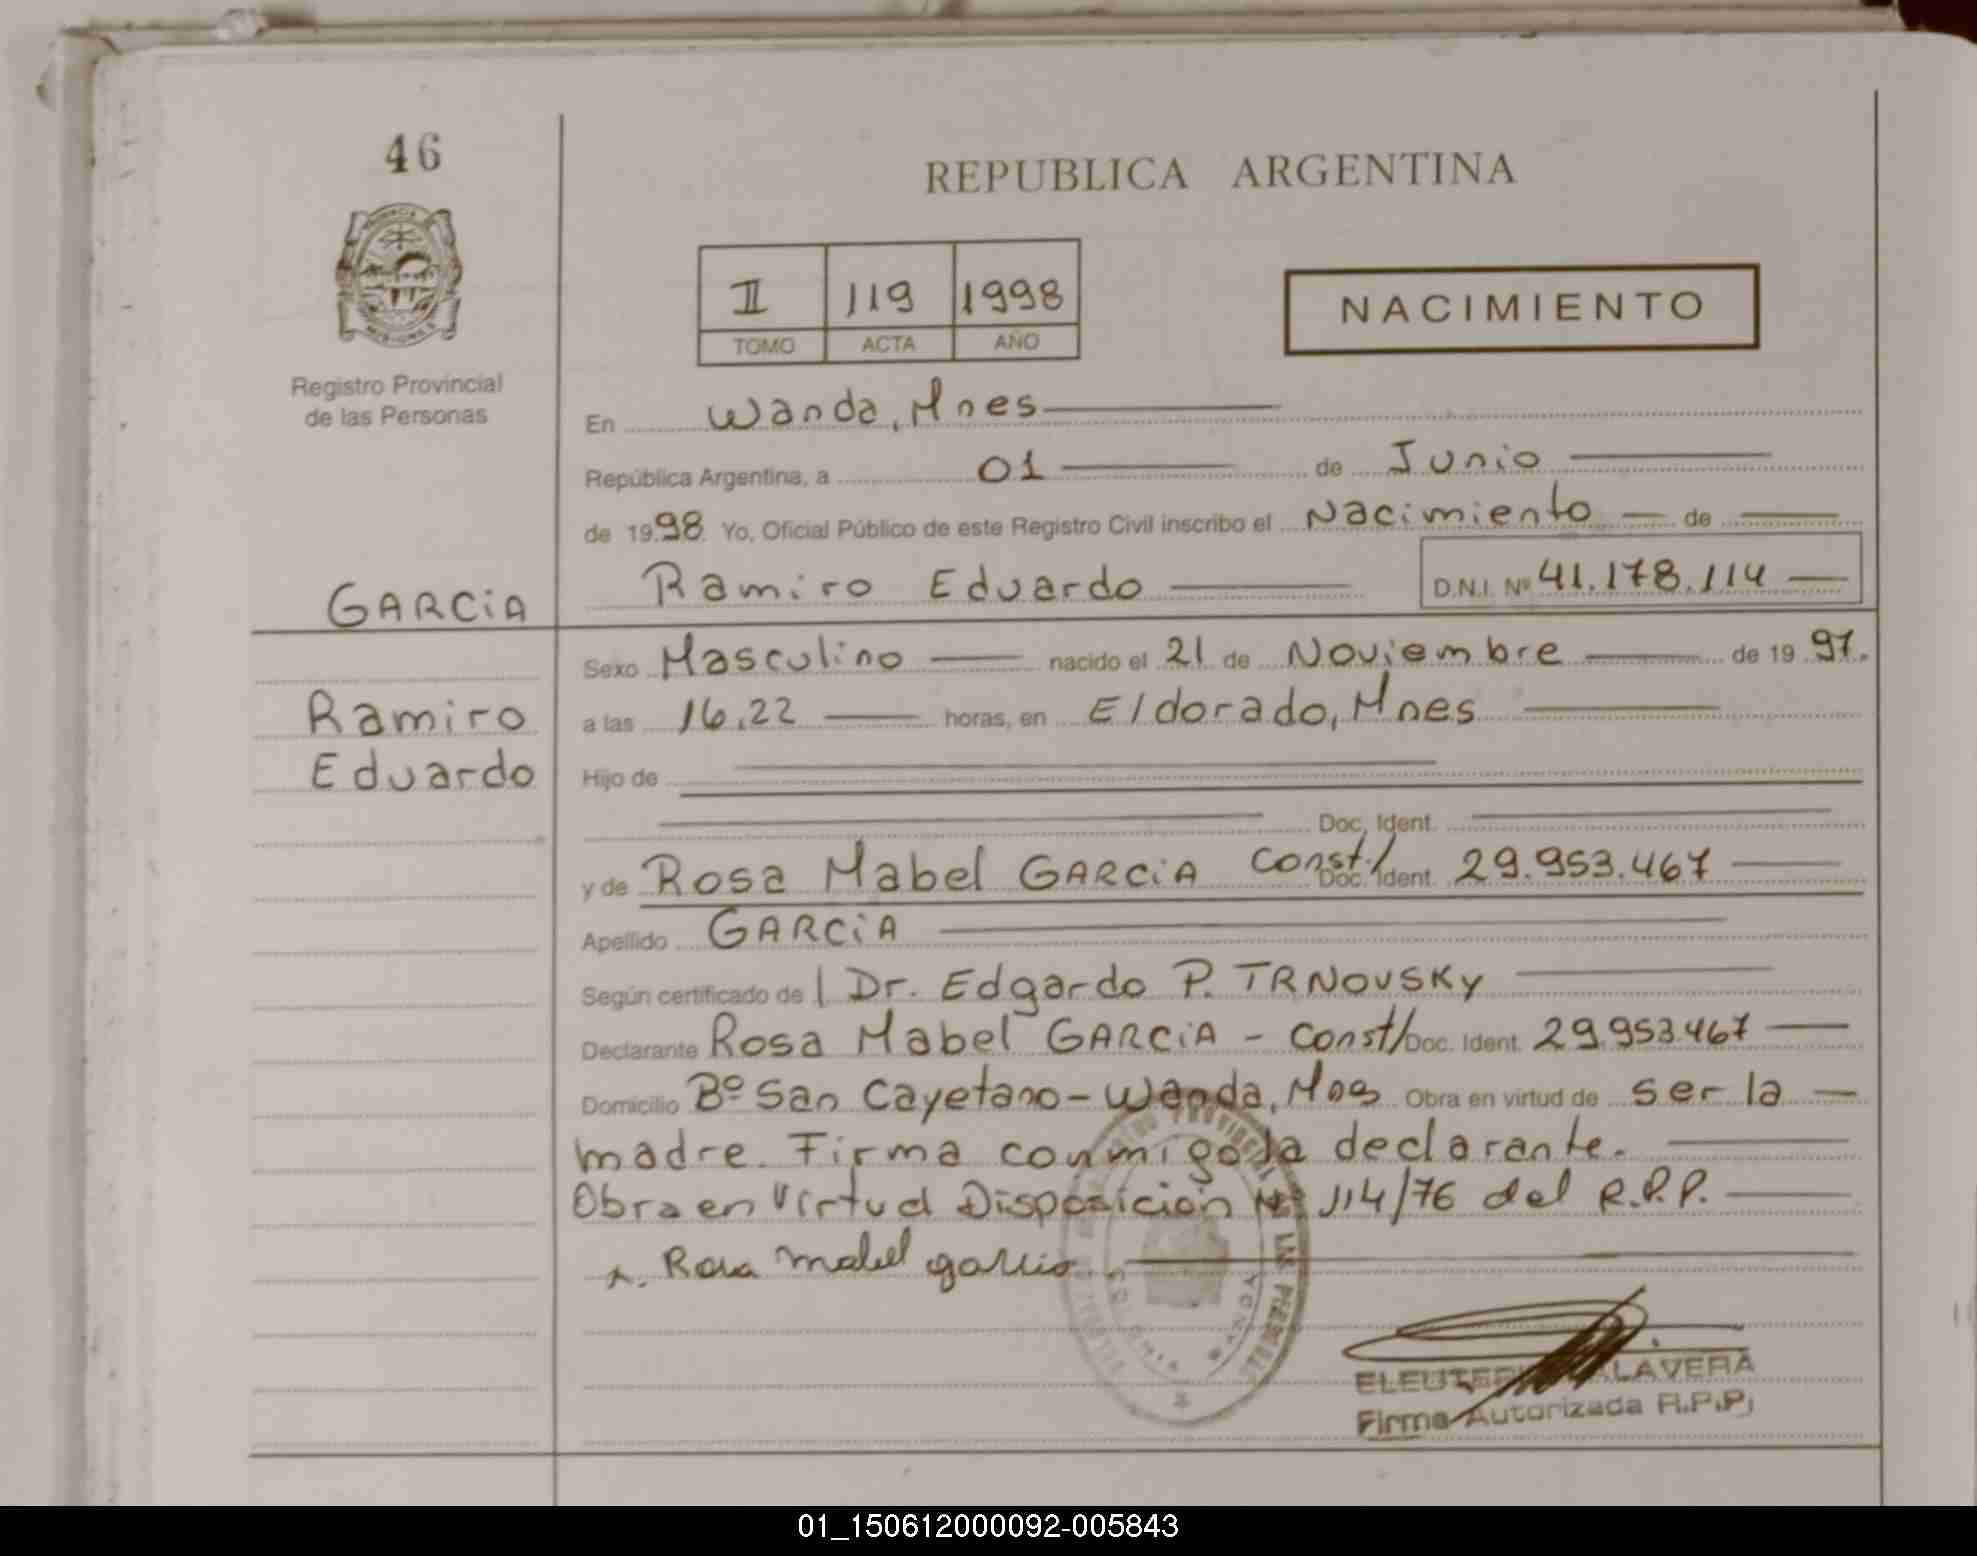 46
REPUBLICA ARGENTINA
II 119 1998
TOMO ACTA AÑO
NACIMIENTO
Registro Provincial
de las Personas
En Wanda, Mnes
República Argentina, a 01 de Junio
de 1998 Yo, Oficial Público de este Registro Civil inscribo el Nacimiento de
GARCiA
Ramiro Eduardo D.N.I. Nº 41.178.114
Ramiro
Eduardo
Sexo Masculino nacido el 21 de Noviembre de 1997.
a las 16,22 horas, en Eldorado, Mnes
Hijo de
Doc. Ident.
y de Rosa Mabel GARCiA Const/ Doc. Ident. 29.953.467
Apellido GARCiA
Según certificado de l Dr. Edgardo P. TRNOVSKY
Declarante Rosa Mabel GARCiA - Const/ Doc. Ident. 29.953.467
Domicilio Bº San Cayetano - Wanda, Mnes Obra en virtud de ser la
madre. Firma conmigo la declarante.
Obra en Virtud Disposición Nº 114/76 del R.P.P.
Rosa Mabel garcia
WANDA
Firma Autorizada R.P.P.
01_150612000092-005843